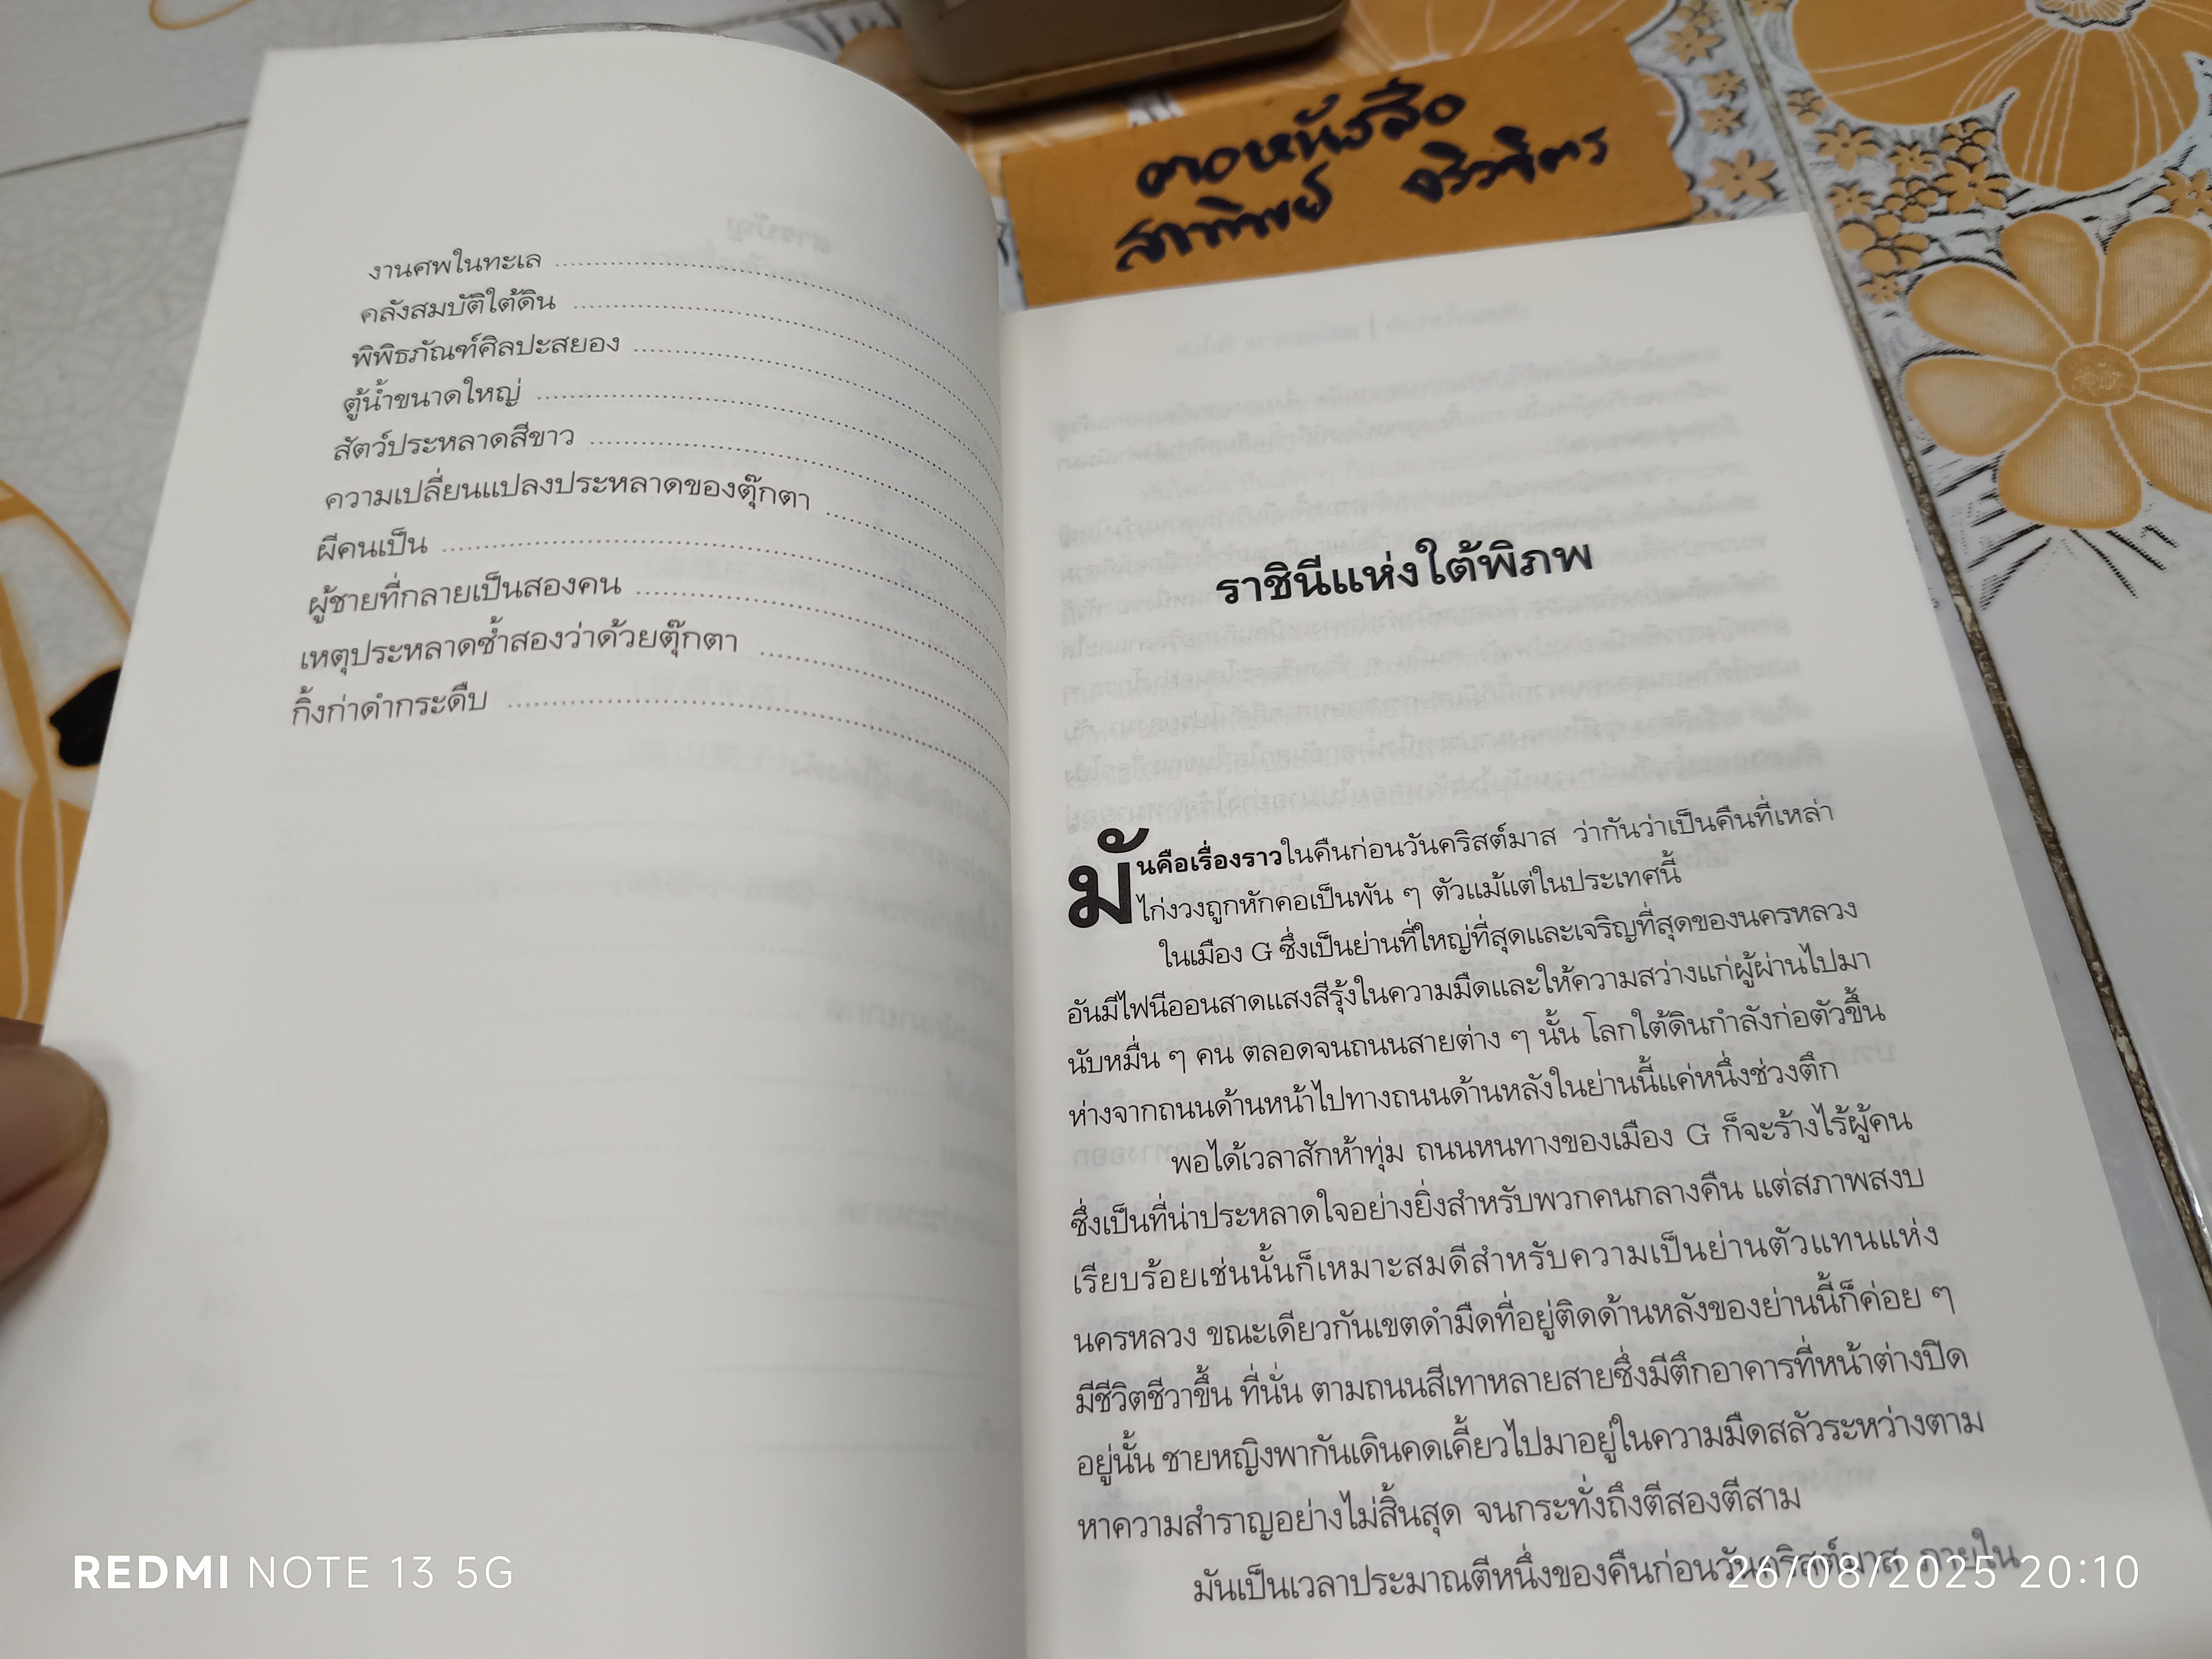 คอหนังสือ
งานศพในทะเล
คลังสมบัติใต้ดิน
พิพิธภัณฑ์ศิลปะสยอง
ตู้น้ำขนาดใหญ่
สัตว์ประหลาดสีขาว
ความเปลี่ยนแปลงประหลาดของตุ๊กตา
ผีคนเป็น
ผู้ชายที่กลายเป็นสองคน
เหตุประหลาดซ้ำสองว่าด้วยตุ๊กตา
กิ้งก่าดำกระดืบ
ราชินีแห่งใต้พิภพ
มันคือเรื่องราวในคืนก่อนวันคริสต์มาส ว่ากันว่าเป็นคืนที่เหล่า
ไก่งวงถูกหักคอเป็นพัน ๆ ตัวแม้แต่ในประเทศนี้
ในเมือง G ซึ่งเป็นย่านที่ใหญ่ที่สุดและเจริญที่สุดของนครหลวง
อันมีไฟนีออนสาดแสงสีรุ้งในความมืดและให้ความสว่างแก่ผู้ผ่านไปมา
นับหมื่น ๆ คน ตลอดจนถนนสายต่าง ๆ นั้น โลกใต้ดินกำลังก่อตัวขึ้น
ห่างจากถนนด้านหน้าไปทางถนนด้านหลังในย่านนี้แค่หนึ่งช่วงตึก
พอได้เวลาสักห้าทุ่ม ถนนหนทางของเมือง G ก็จะร้างไร้ผู้คน
ซึ่งเป็นที่น่าประหลาดใจอย่างยิ่งสำหรับพวกคนกลางคืน แต่สภาพสงบ
เรียบร้อยเช่นนั้นก็เหมาะสมดีสำหรับความเป็นย่านตัวแทนแห่ง
นครหลวง ขณะเดียวกันเขตดำมืดที่อยู่ติดด้านหลังของย่านนี้ก็ค่อย ๆ
มีชีวิตชีวาขึ้น ที่นั่น ตามถนนสีเทาหลายสายซึ่งมีตึกอาคารที่หน้าต่างปิด
อยู่นั้น ชายหญิงพากันเดินคดเคี้ยวไปมาอยู่ในความมืดสลัวระหว่างตาม
หาความสำราญอย่างไม่สิ้นสุด จนกระทั่งถึงตีสองตีสาม
มันเป็นเวลาประมาณตีหนึ่งของคืนก่อนวันคริสต์มาส ภายใน
REDMI NOTE 13 5G
26/08/2025 20:10